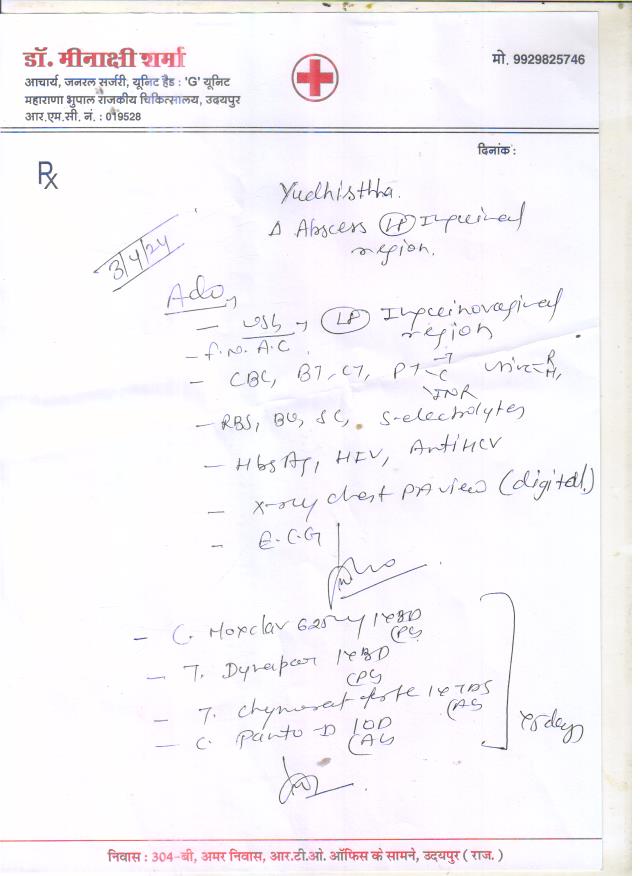 डॉ. मीनाक्षी शर्मा
मो. 9929825746
आचार्य, जनरल सर्जरी, यूनिट हैड : 'G' यूनिट
महाराणा भुपाल राजकीय चिकित्सालय, उदयपुर
आर.एम.सी. नं. : 019528
दिनांक :
Rx
Yudhisthha.
Δ Abscess Inguinal
region.
3/4/24
Adv
- USG → Inguinovaginal
region
- F.N.A.C
- CBC, BT, CT, PT
INR
- RBS, BU, SC, S-electrolytes
- HbsAg, HIV, Anti HCV
- X-ray chest PA view (digital)
- E.C.G
- C. Moxclav 625mg 1 x BD
(PC)
- T. Dynapar 1 x BD
(PC)
- T. Chymoral forte 1 x TDS
- C. Panto-D 1 OD
x 5 days
निवास : 304-बी, अमर निवास, आर.टी.ओ. ऑफिस के सामने, उदयपुर ( राज. )